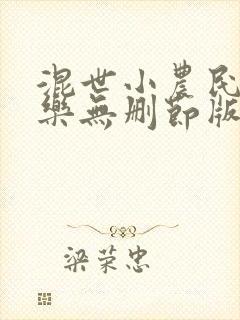 混世小農民
樂無删節版
梁荣忠